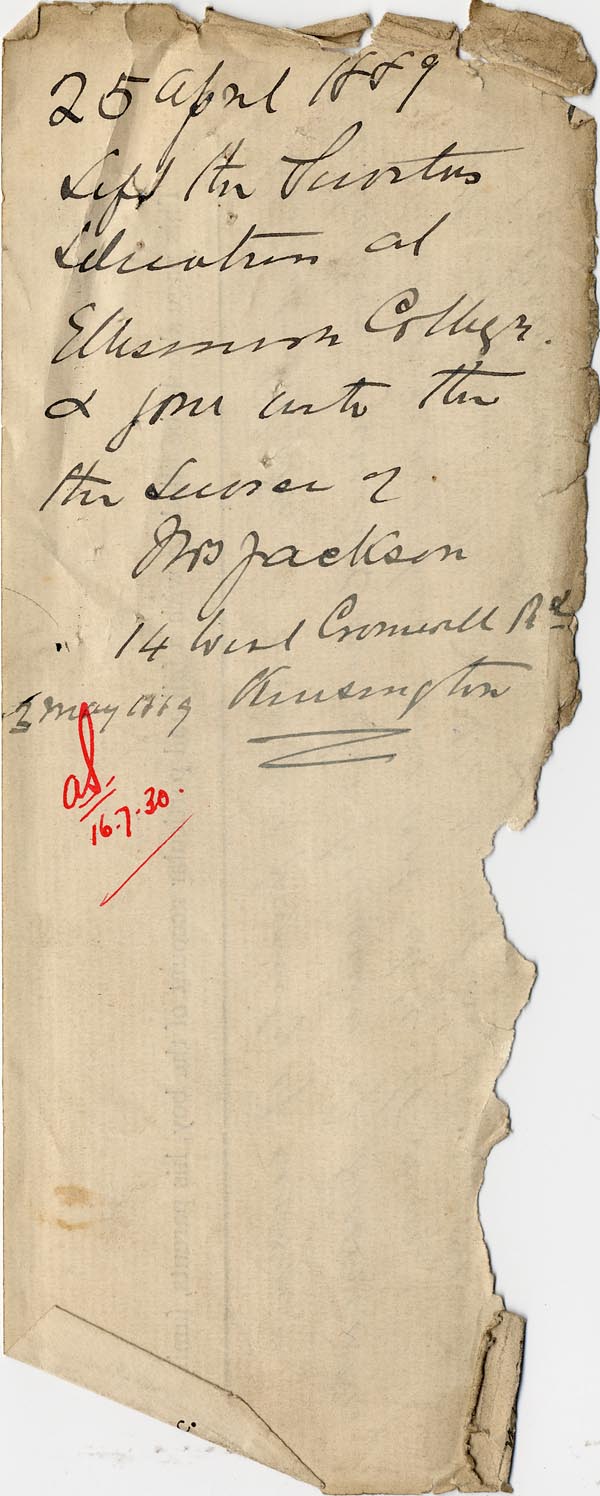 25 April 1889
Left the Societies
Education at
Ellesmere College.
& gone into the
the Service of
Mrs Jackson
14 West Cromwell Rd
Kensington
3 May 1889
16.7.30.